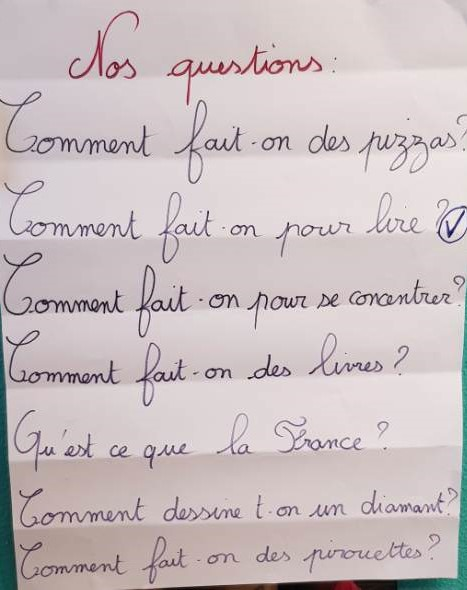 Nos questions :
Comment fait-on des pizzas?
Comment fait-on pour lire ?
Comment fait-on pour se concentrer?
Comment fait-on des livres ?
Qu'est ce que la France ?
Comment dessine t-on un diamant?
Comment fait-on des pirouettes?